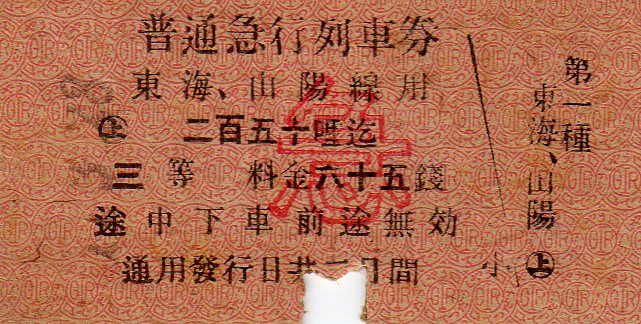 普通急行列車券
東海、山陽線用
㊤ 二百五十哩迄
三等 料金六十五錢
途中下車前途無効
通用發行日共二日間
小
第一種
東海、山陽㊤
急